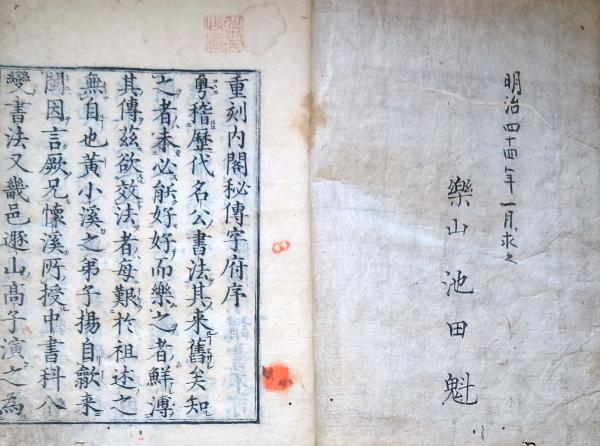 明治四十四年一月求之
樂山 池田魁
重刻内閣秘傳字府序
粤稽歷代名公書法其來舊矣知
之者未必能好好而樂之者鮮溥
其傳茲欲效法者毋艱於祖述之
無自也黃小溪之弟子揚自歙來
閩因言厥兄懷溪所授中書科八
變書法又畿邑遯山高子演之為